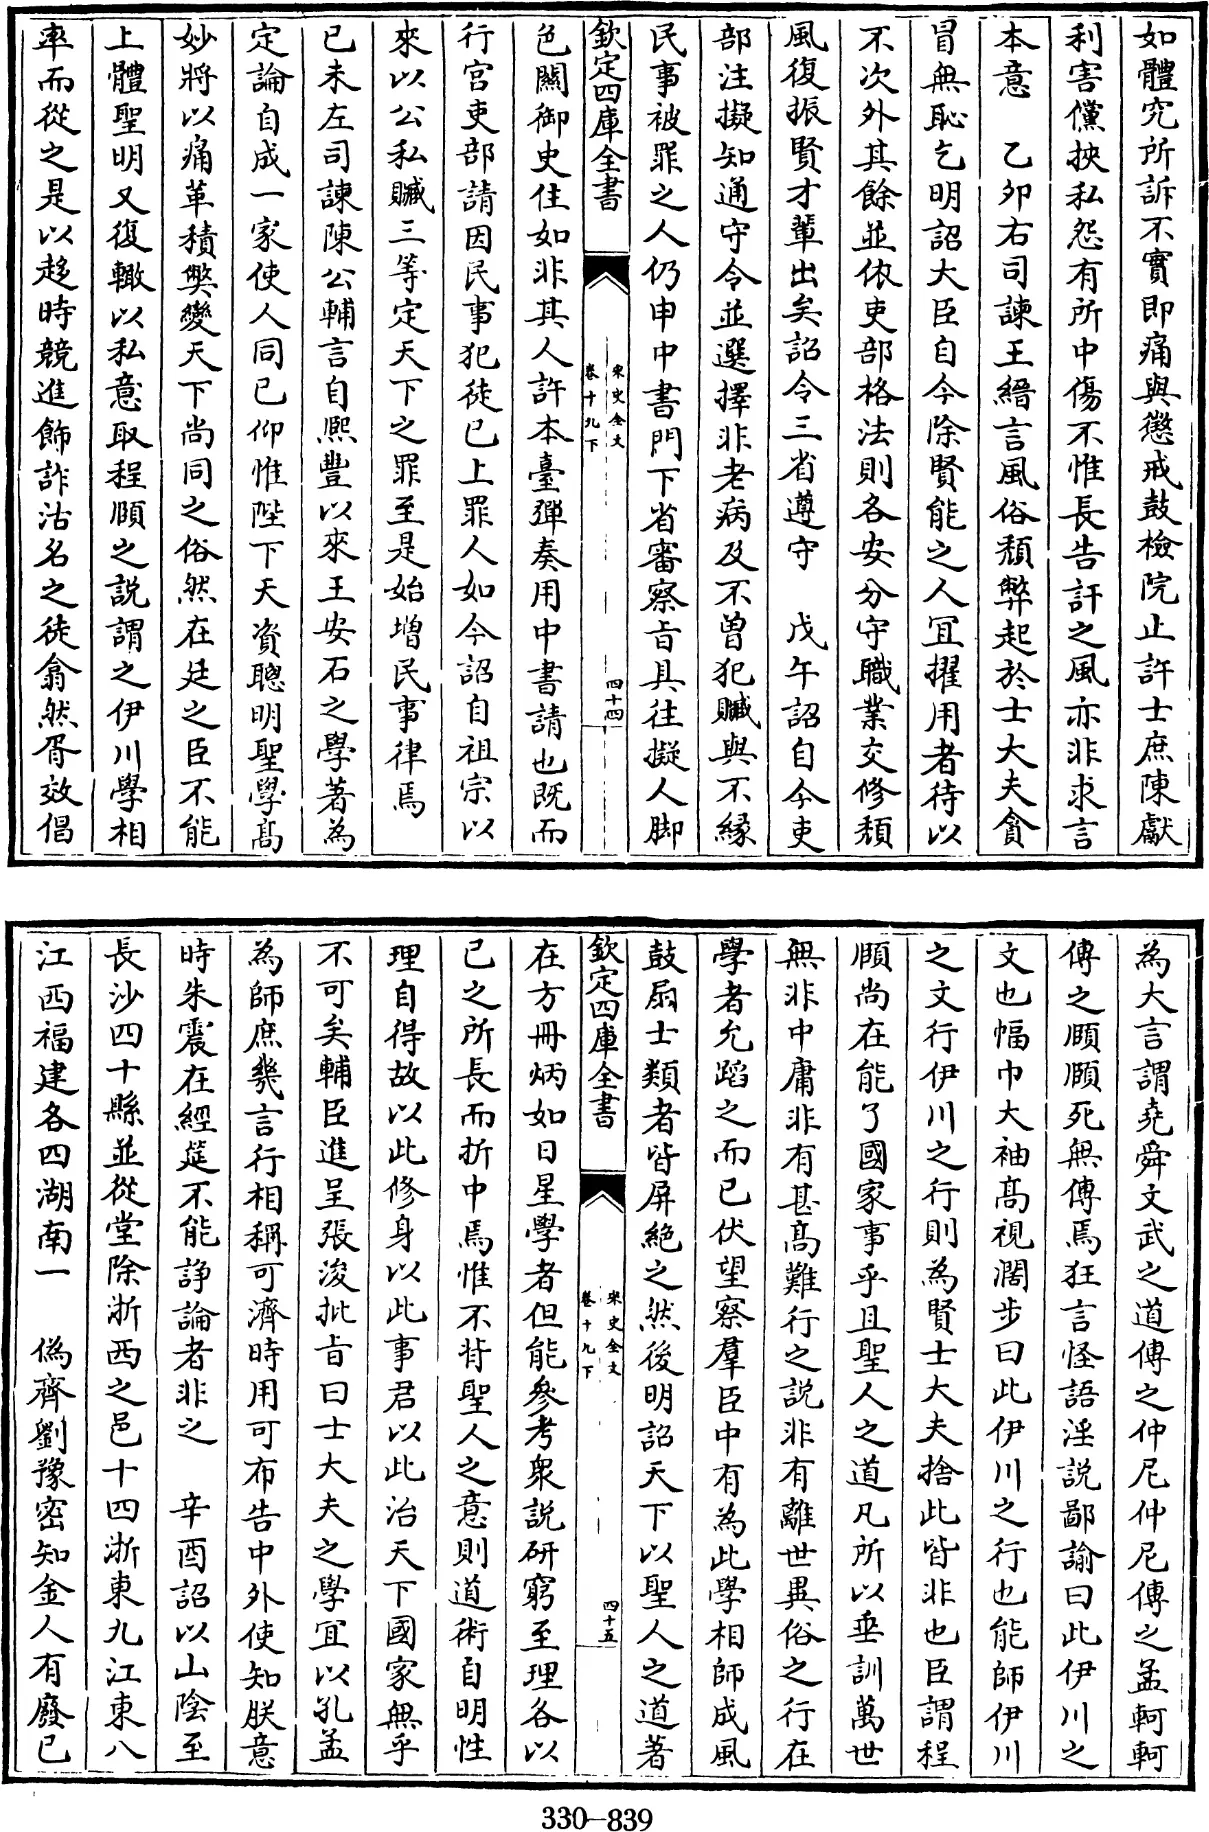 如體究所訴不實即痛與懲戒鼓檢院止許士庶陳獻
利害儻挾私怨有所中傷不惟長告訐之風亦非求言
本意　乙卯右司諫王縉言風俗頽弊起於士大夫貪
冒無恥乞明詔大臣自今除賢能之人冝擢用者待以
不次外其餘並依吏部格法則各安分守職業交修頽
風復振賢才輩出矣詔令三省遵守　戊午詔自今吏
部注擬知通守令並選擇非老病及不曽犯贓與不緣
民事被罪之人仍申中書門下省審察㫖具徃擬人脚
欽定四庫全書
宋史全文
卷十九下
四十四
色關御史住如非其人許本臺彈奏用中書請也既而
行宫吏部請因民事犯徒已上罪人如今詔自祖宗以
來以公私贓三等定天下之罪至是始增民事律焉
已未左司諫陳公輔言自熙豐以來王安石之學著為
定論自成一家使人同已仰惟陛下天資聰明聖學髙
妙將以痛革積獘變天下尚同之俗然在廷之臣不能
上體聖明又復轍以私意取程頥之説謂之伊川學相
率而從之是以趍時競進飾詐沽名之徒翕然胥效倡
為大言謂堯舜文武之道傳之仲尼仲尼傳之孟軻軻
傳之頥頥死無傳焉狂言怪語淫説鄙諭曰此伊川之
文也幅巾大袖髙視濶步曰此伊川之行也能師伊川
之文行伊川之行則為賢士大夫捨此皆非也臣謂程
頥尚在能了國家事乎且聖人之道凡所以垂訓萬世
無非中庸非有甚髙難行之説非有離世異俗之行在
學者允蹈之而已伏望察羣臣中有為此學相師成風
鼓扇士類者皆屏絶之然後明詔天下以聖人之道著
欽定四庫全書
宋史全文
卷十九下
四十五
在方冊炳如日星學者但能參考衆説研窮至理各以
已之所長而折中焉惟不背聖人之意則道術自明性
理自得故以此修身以此事君以此治天下國家無乎
不可矣輔臣進呈張浚批㫖曰士大夫之學冝以孔孟
為師庶幾言行相稱可濟時用可布告中外使知朕意
時朱震在經筵不能諍論者非之　辛酉詔以山陰至
長沙四十縣並從堂除浙西之邑十四浙東九江東八
江西福建各四湖南一　偽齊劉豫密知金人有廢已
330-839